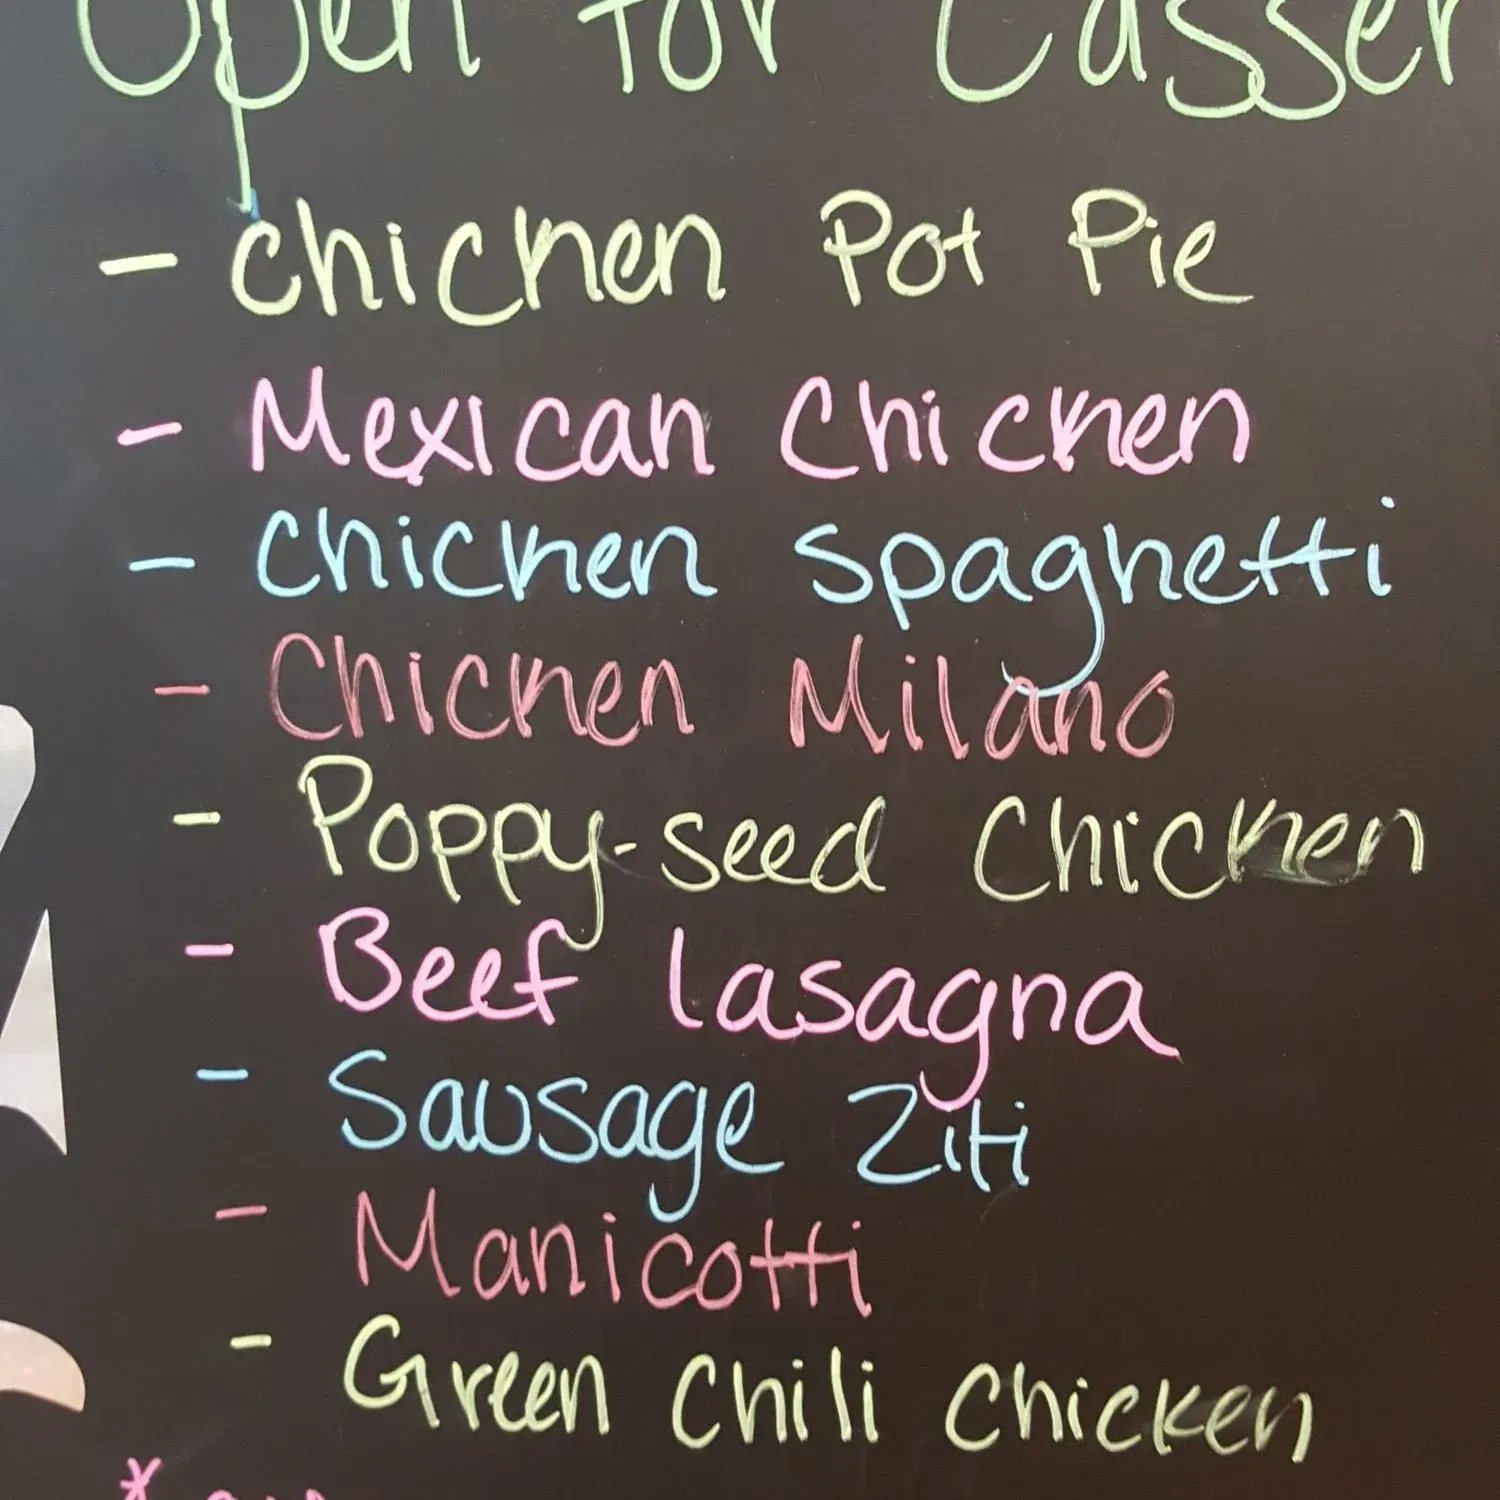 Open for Casser
- Chicken Pot Pie
- Mexican Chicken
- Chicken Spaghetti
- Chicken Milano
- Poppy-seed Chicken
- Beef lasagna
- Sausage Ziti
- Manicotti
- Green Chili Chicken
*